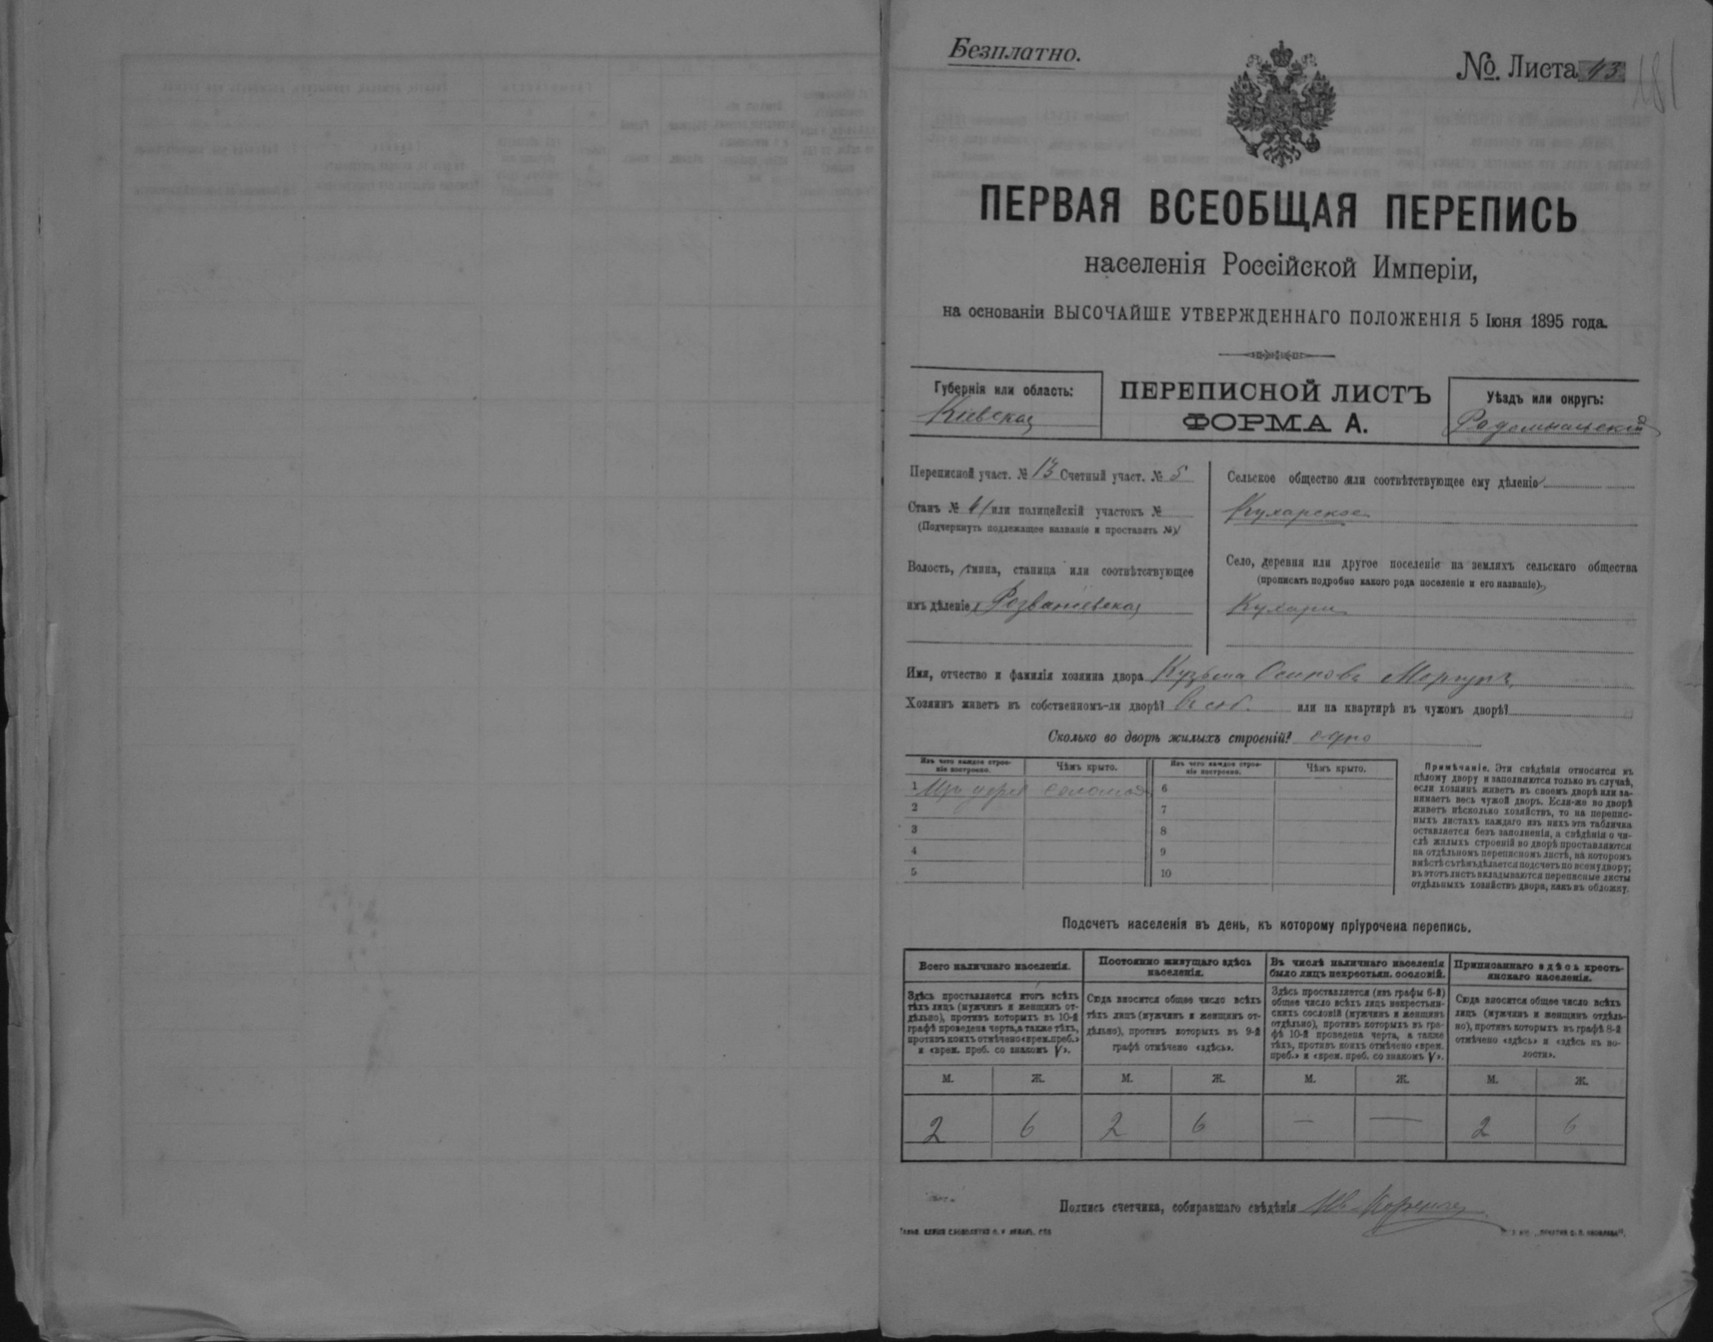 Безплатно.
№. Листа 43
181
ПЕРВАЯ ВСЕОБЩАЯ ПЕРЕПИСЬ
населенія Россійской Имперіи,
на основаніи ВЫСОЧАЙШЕ УТВЕРЖДЕННАГО ПОЛОЖЕНІЯ 5 Іюня 1895 года.
Губернія или область:
Кіевская
ПЕРЕПИСНОЙ ЛИСТЪ
ФОРМА А.
Уѣздъ или округъ:
Радомысльскій
Переписной участ. № 13 Счетный участ. № 5
Станъ № или полицейскій участокъ №
(Подчеркнуть подлежащее названіе и проставить №)
Волость, гмина, станица или соотвѣтствующее
имъ дѣленіе
Сельское общество или соотвѣтствующее ему дѣленіе
Кухарское
Село, деревня или другое поселеніе на земляхъ сельскаго общества
(прописать подробно какого рода поселеніе и его названіе).
Кухари
Имя, отчество и фамилія хозяина двора Кузьма Осиповъ
Хозяинъ живетъ въ собственномъ-ли дворѣ? Въ соб. или на квартирѣ въ чужомъ дворѣ?
Сколько во дворѣ жилыхъ строеній? одно
Изъ чего каждое строеніе построено.
Чѣмъ крыто.
Изъ чего каждое строеніе построено.
Чѣмъ крыто.
1 Изъ дерев соломой
6
2
7
3
8
4
9
5
10
Примѣчаніе. Эти свѣдѣнія относятся къ
цѣлому двору и заполняются только въ случаѣ,
если хозяинъ живетъ въ своемъ дворѣ или за-
нимаетъ весь чужой дворъ. Если-же во дворѣ
живетъ нѣсколько хозяйствъ, то на перепис-
ныхъ листахъ каждаго изъ нихъ эта табличка
оставляется безъ заполненія, а свѣдѣнія о чи-
слѣ жилыхъ строеній во дворѣ проставляются
на отдѣльномъ переписномъ листѣ, на которомъ
вмѣстѣ съ тѣмъ дѣлается подсчетъ по всему двору;
въ этотъ листъ вкладываются переписные листы
отдѣльныхъ хозяйствъ двора, какъ въ обложку.
Подсчетъ населенія въ день, къ которому пріурочена перепись.
Всего наличнаго населенія.
Здѣсь проставляется итогъ всѣхъ
тѣхъ лицъ (мужчинъ и женщинъ от-
дѣльно), противъ которыхъ въ 10-й
графѣ проведена черта, а также тѣхъ,
противъ коихъ отмѣчено «врем. преб.»
и «врем. преб. со знакомъ V».
Постоянно живущаго здѣсь
населенія.
Сюда вносится общее число всѣхъ
тѣхъ лицъ (мужчинъ и женщинъ от-
дѣльно), противъ которыхъ въ 9-й
графѣ отмѣчено «здѣсь».
Въ числѣ наличнаго населенія
было лицъ некрестьян. сословій.
Здѣсь проставляется (изъ графы 6-й)
общее число всѣхъ лицъ некрестьян-
скихъ сословій (мужчинъ и женщинъ
отдѣльно), противъ которыхъ въ гра-
фѣ 10-й проведена черта, а также
тѣхъ, противъ коихъ отмѣчено «врем.
преб.» и «врем. преб. со знакомъ V».
Приписаннаго здѣсь кресть-
янскаго населенія.
Сюда вносится общее число всѣхъ
лицъ (мужчинъ и женщинъ отдѣль-
но), противъ которыхъ въ графѣ 8-й
отмѣчено «здѣсь» и «здѣсь въ во-
лости».
М. Ж. М. Ж. М. Ж. М. Ж.
2 6 2 6 — — 2 6
Подпись счетчика, собиравшаго свѣдѣнія